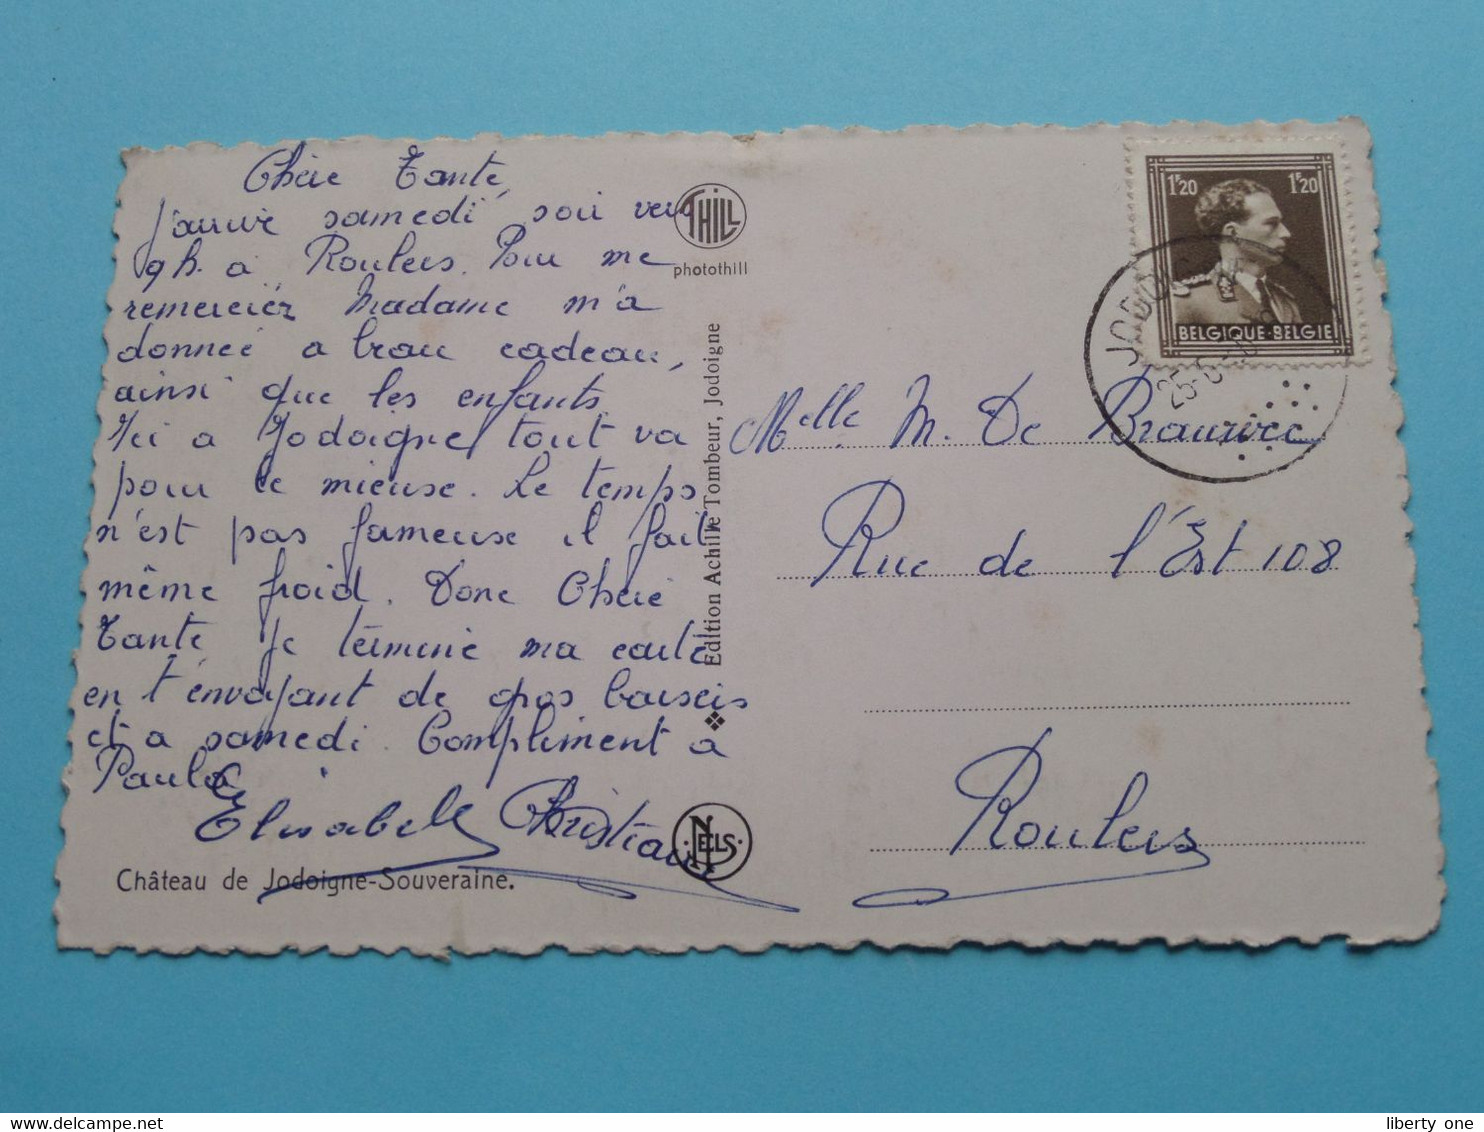 Chère Tante,
j'arrive samedi soir vers
9h. à Roulers. Pour me
remercier Madame m'a
donnée a beau cadeau,
ainsi que les enfants
Ici a Jodoigne tout va
pour le mieuse. Le temps
n'est pas fameuse il fait
même froid. Donc Chère
Tante je termine ma carte
en t'envoyant de gros baiseis
et a samedi. Compliment a
Paula
Elisabeth Christiane
Château de Jodoigne-Souveraine.
THILL
photothill
Edition Achille Tombeur, Jodoigne
NELS
1F20 1F20
BELGIQUE-BELGIE
JODOIGNE
25-6
Melle M. De
Rue de l'Est 108
Roulers
liberty one